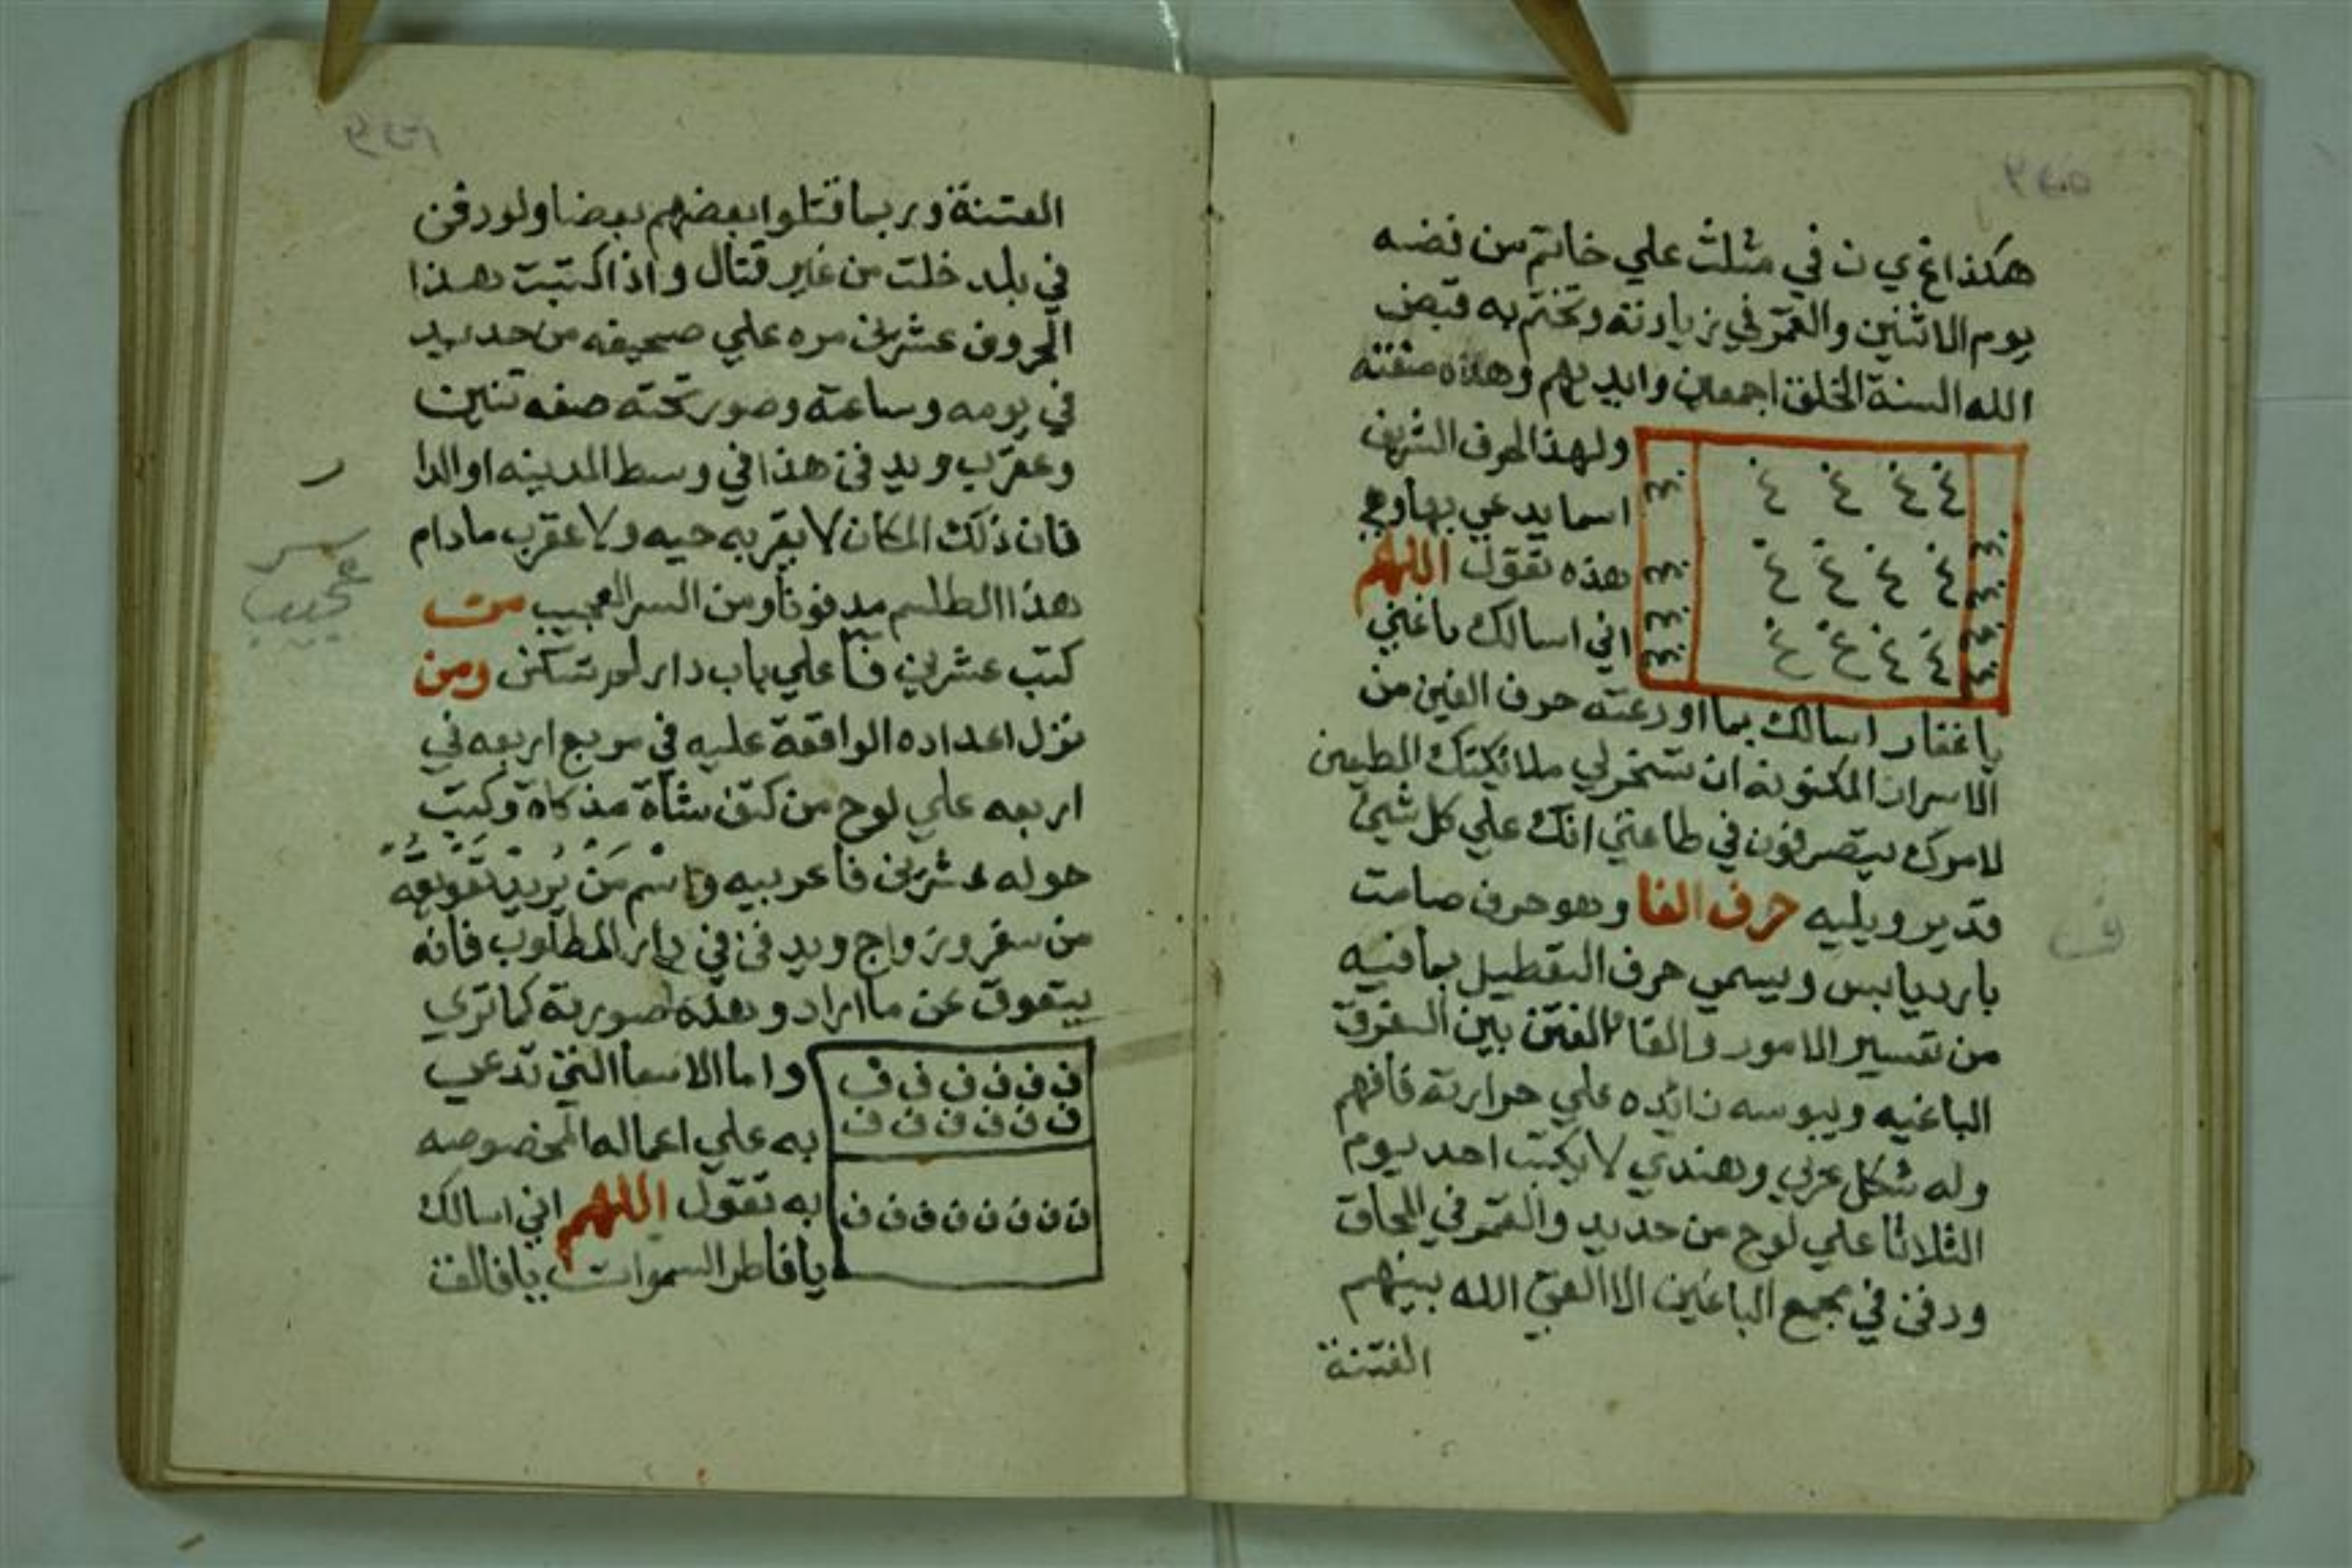 هكذا غ ي ن في مثلث علي خاتم من فضه
يوم الاثنين والقمر في زيادته وتختم به قبض
الله السنة الخلق اجمعين وايديهم وهذه صفته
ولهذا الحرف الشريف
اسما يدعي بها وهي
هذه تقول اللهم
اني اسالك ياغني
ياغفار اسالك بما اودعته حرف الغين من
الاسرار المكنونه ان تسخر لي ملائكتك المطيعين
لامرك يتصرفون في طاعتي انك علي كل شيئ
قدير ويليه حرف الفا وهو حرف صامت
بارد يابس ويسمي حرف التعطيل بما فيه
من تفسير الامور والقا الفتن بين الفرق
الباغيه ويبوسه زائده علي حرارته فافهم
وله شكل عربي وهندي لا يكتب احد يوم
الثلاثا علي لوح من حديد والقمر في المحاق
ودفن في مجمع الباغين الا القي الله بينهم
الفتنة
غ غ غ غ
غ غ غ غ
غ غ غ غ
ف
الفتنة وربما قتلوا بعضهم بعضا ولو دفن
في بلد خلت من غير قتال واذا كتبت هذا
الحروف عشرين مره علي صحيفه من حديد
في يومه وساعته وصور تحته صفه تنين
وعقرب ويدفن هذا في وسط المدينه او الدا
ر
فان ذلك المكان لا يقربه حيه ولا عقرب مادام
هذا الطلسم مدفونا ومن السر العجيب من
سر
عجيب
كتب عشرين فا علي باب دار لم تسكن ومن
نزل اعداده الواقعة عليه في مربع اربعه في
اربعه علي لوح من كتف شاة مذكاة وكتب
حوله عشرين فا عربيه واسم من يريد تعويقه
من سفر وزواج ويدفن في دار المطلوب فانه
يتعوق عن ما اراد وهذه صورته كما تري
واما الاسما التي تدعي
به علي اعماله المخصوصه
به تقول اللهم اني اسالك
يافاطر السموات يافالق
ف ف ف ف ف ف
ف ف ف ف ف ف
ف ف ف ف ف ف ف ف